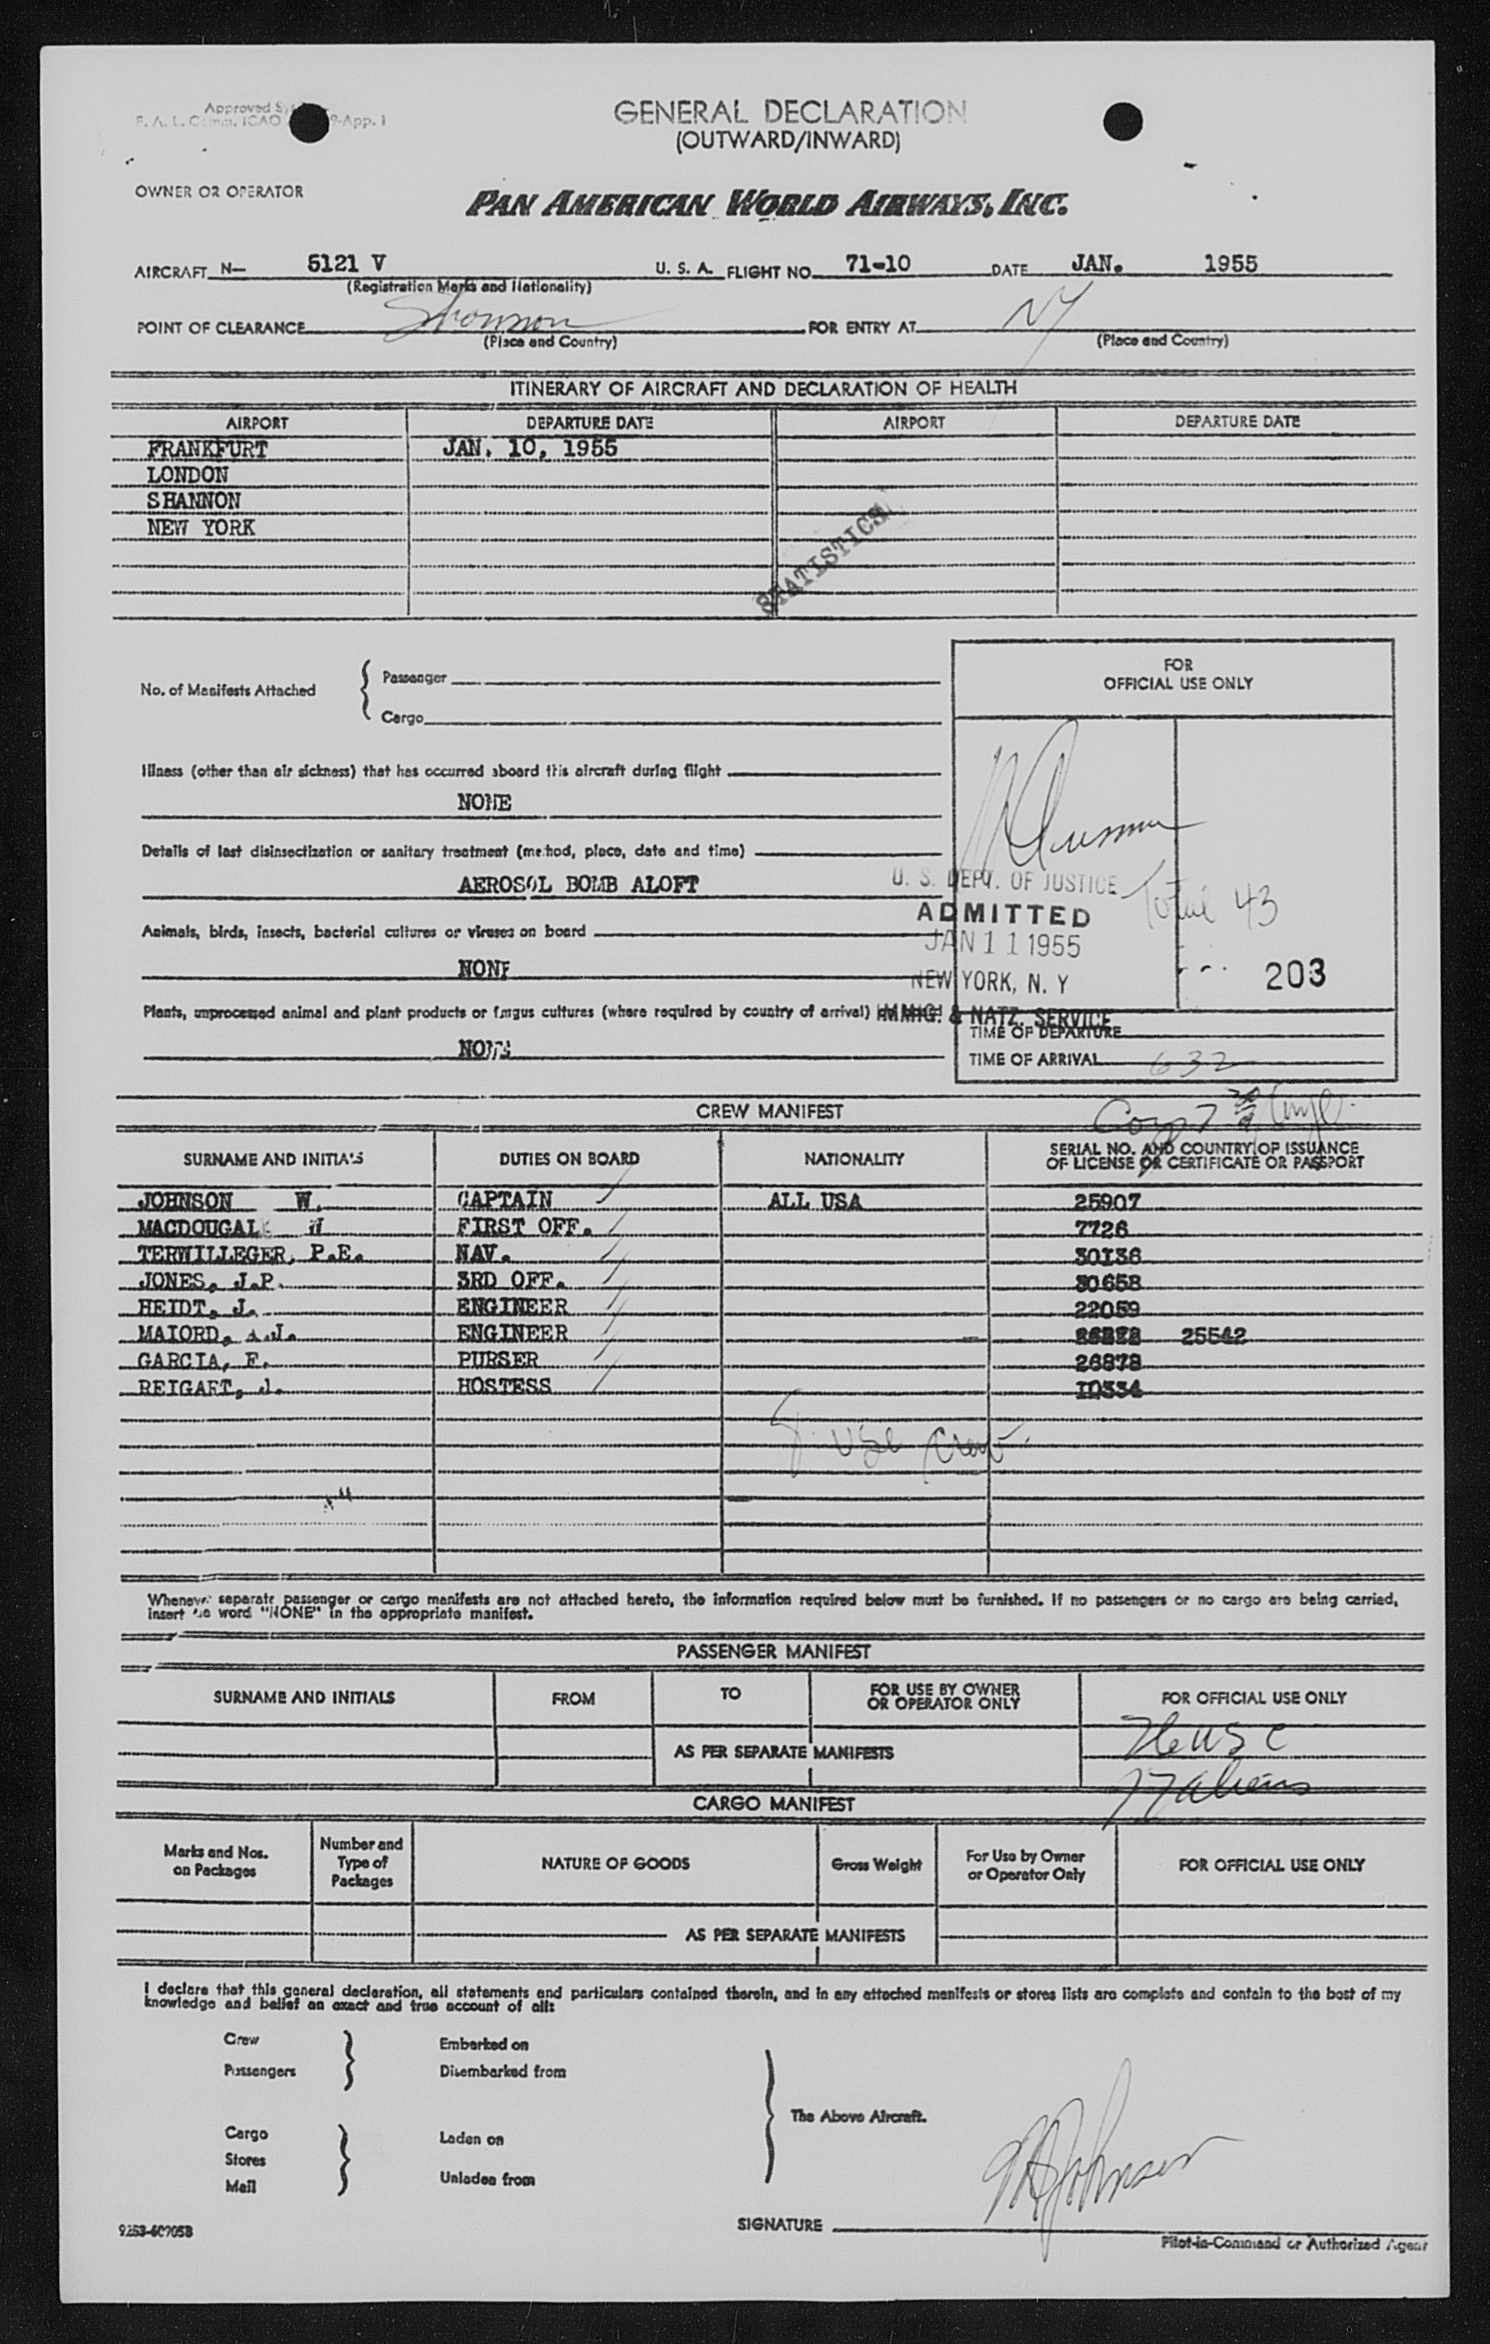 GENERAL DECLARATION
(OUTWARD/INWARD)
OWNER OR OPERATOR
PAN AMERICAN WORLD AIRWAYS, INC.
AIRCRAFT N— 5121 V U. S. A. FLIGHT NO. 71-10 DATE JAN. 1955
(Registration Marks and Nationality)
POINT OF CLEARANCE Shannon FOR ENTRY AT NY
(Place and Country) (Place and Country)
ITINERARY OF AIRCRAFT AND DECLARATION OF HEALTH
AIRPORT DEPARTURE DATE AIRPORT DEPARTURE DATE
FRANKFURT JAN. 10, 1955
LONDON
SHANNON
NEW YORK
STATISTICS
FOR
OFFICIAL USE ONLY
No. of Manifests Attached { Passenger
Cargo
Illness (other than air sickness) that has occurred aboard this aircraft during flight
NONE
Details of last disinsectization or sanitary treatment (method, place, date and time)
AEROSOL BOMB ALOFT
U. S. DEPT. OF JUSTICE
ADMITTED
Total 43
Animals, birds, insects, bacterial cultures or viruses on board
JAN 11 1955
NONE
NEW YORK, N. Y
203
Plants, unprocessed animal and plant products or fungus cultures (where required by country of arrival)
IMMIG. & NATZ. SERVICE
TIME OF DEPARTURE
NONE
TIME OF ARRIVAL 632
CREW MANIFEST
SURNAME AND INITIALS DUTIES ON BOARD NATIONALITY SERIAL NO. AND COUNTRY OF ISSUANCE
OF LICENSE OR CERTIFICATE OR PASSPORT
JOHNSON W. CAPTAIN ALL USA 25907
MACDOUGAL W FIRST OFF. 7726
TERWILLEGER, P.E. NAV. 30136
JONES, J.P. 3RD OFF. 30658
HEIDT, J. ENGINEER 22059
MAIORD, A.J. ENGINEER 25542
GARCIA, F. PURSER 26878
REIGART, J. HOSTESS 10334
8 USC Crew
Whenever separate passenger or cargo manifests are not attached hereto, the information required below must be furnished. If no passengers or no cargo are being carried,
insert the word "NONE" in the appropriate manifest.
PASSENGER MANIFEST
SURNAME AND INITIALS FROM TO FOR USE BY OWNER
OR OPERATOR ONLY FOR OFFICIAL USE ONLY
26 USC
AS PER SEPARATE MANIFESTS
17 Aliens
CARGO MANIFEST
Marks and Nos.
on Packages Number and
Type of
Packages NATURE OF GOODS Gross Weight For Use by Owner
or Operator Only FOR OFFICIAL USE ONLY
AS PER SEPARATE MANIFESTS
I declare that this general declaration, all statements and particulars contained therein, and in any attached manifests or stores lists are complete and contain to the best of my
knowledge and belief an exact and true account of all:
Crew Embarked on
Passengers Disembarked from
The Above Aircraft.
Cargo Laden on
Stores
Mail Unladen from
W Johnson
SIGNATURE
9253-607053
Pilot-in-Command or Authorized Agent